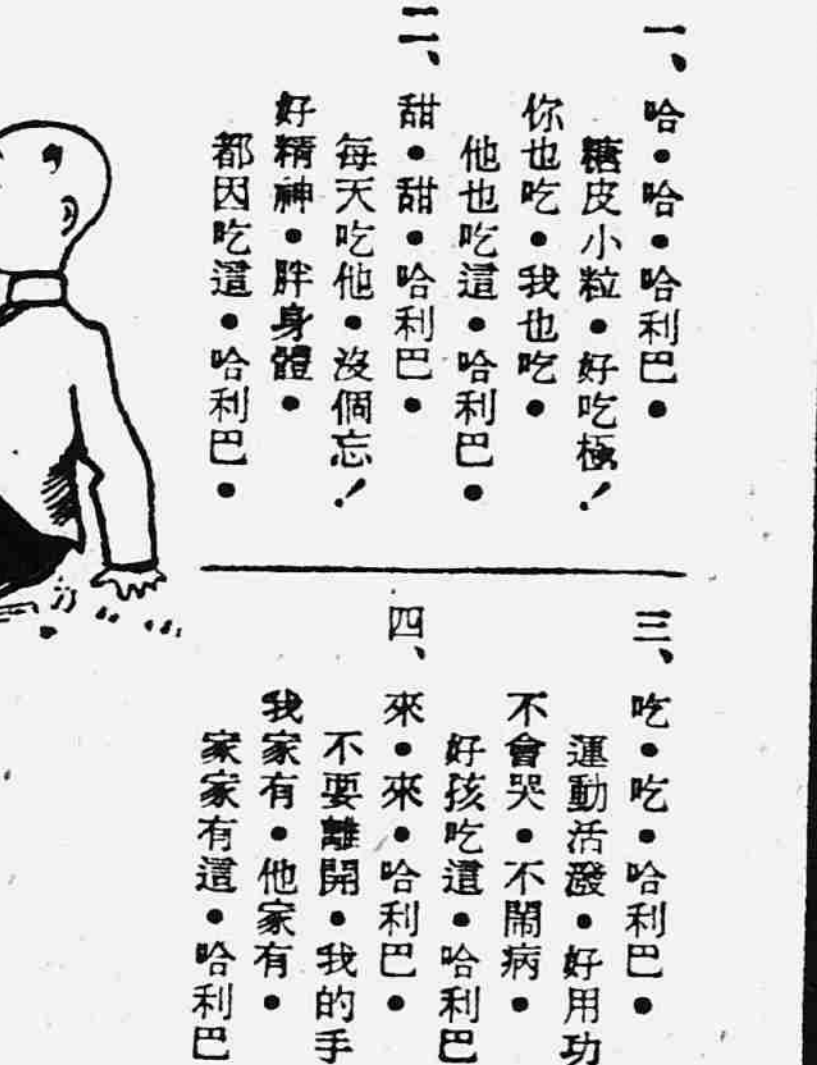 一、哈•哈•哈利巴•
糖皮小粒•好吃極！
你也吃•我也吃•
他也吃這•哈利巴•
二、甜•甜•哈利巴•
每天吃他•沒個忘！
好精神•胖身體•
都因吃這•哈利巴•
三、吃•吃•哈利巴•
運動活潑•好用功
不會哭•不鬧病•
好孩吃這•哈利巴
四、來•來•哈利巴•
不要離開•我的手
我家有•他家有•
家家有這•哈利巴